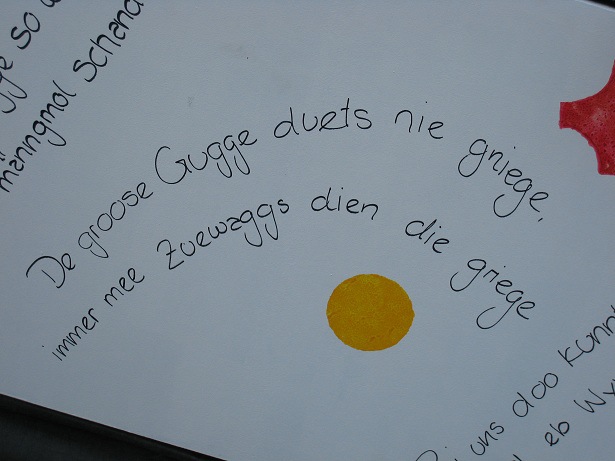 so
manngmol Schand
De groose Gugge duets nie gniege,
immer mee Zuewaggs dien die griege
uns doo kunnt
eb